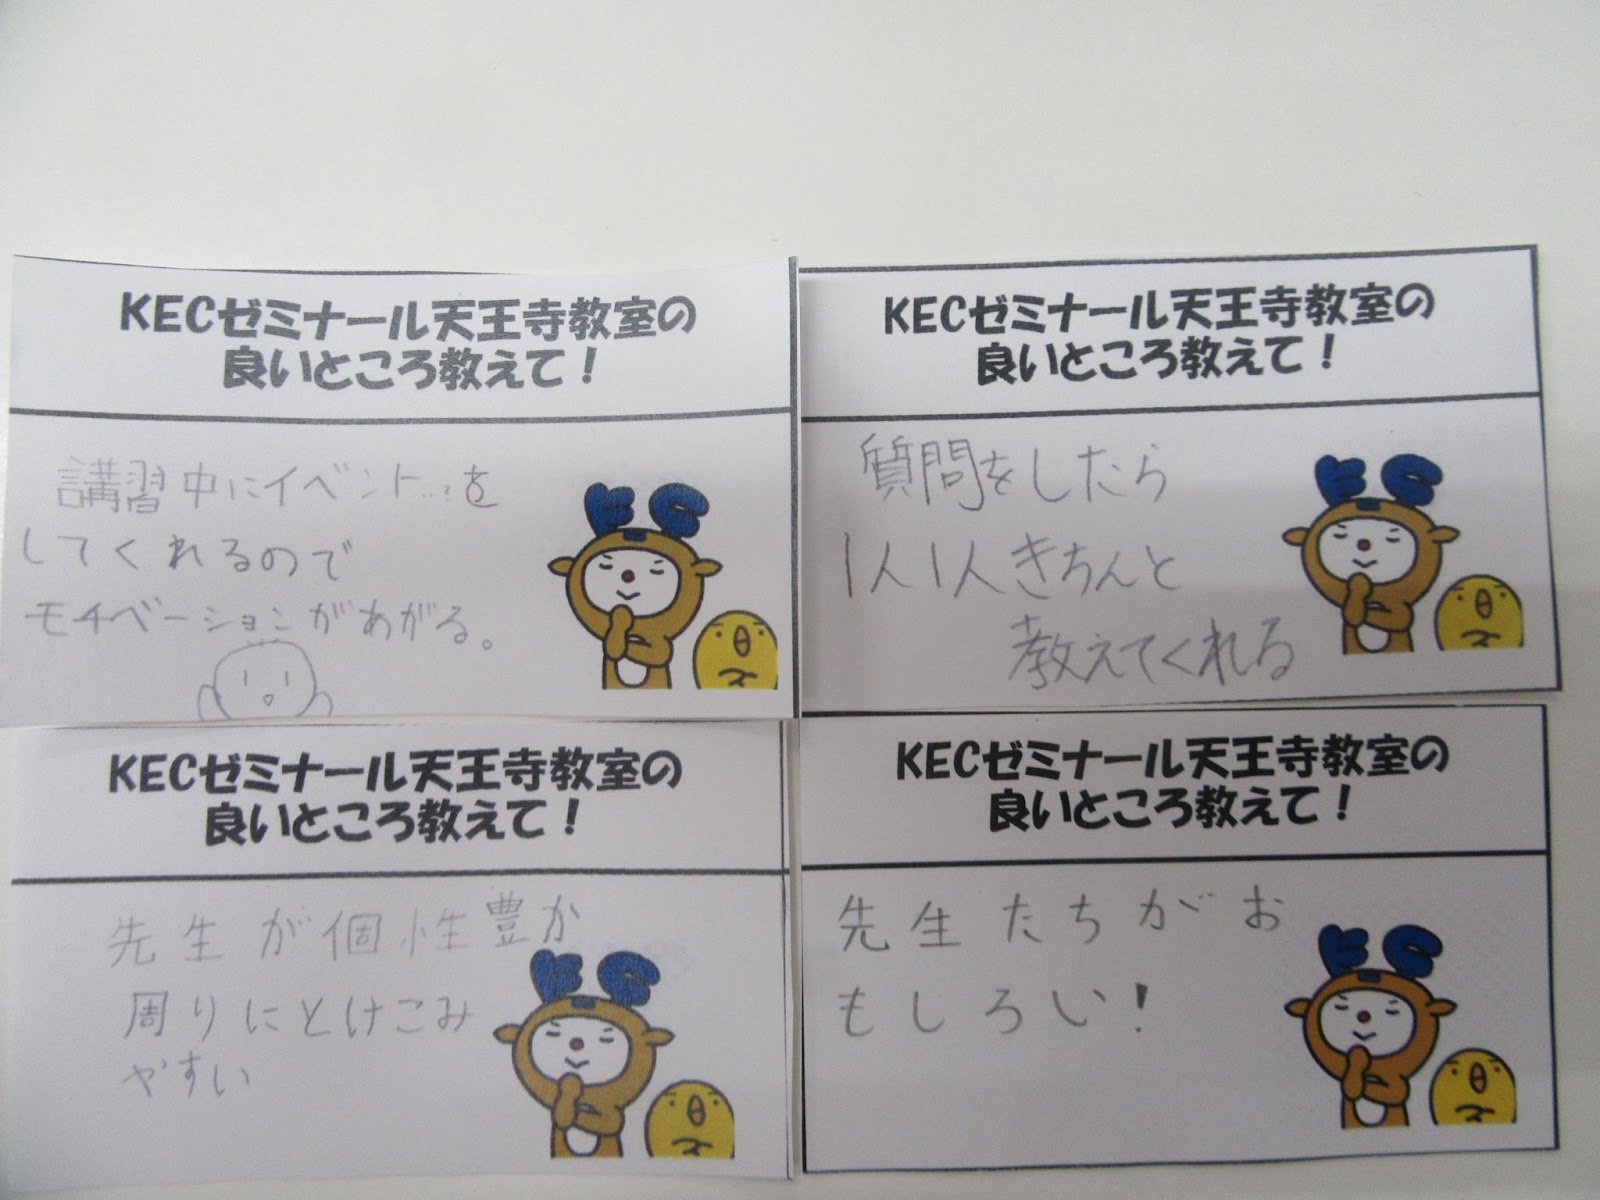 KECゼミナール天王寺教室の
良いところ教えて！
講習中にイベント…?を
してくれるので
モチベーションがあがる。
KECゼミナール天王寺教室の
良いところ教えて！
質問をしたら
1人1人きちんと
教えてくれる
KECゼミナール天王寺教室の
良いところ教えて！
先生が個性豊か
周りにとけこみ
やすい
KECゼミナール天王寺教室の
良いところ教えて！
先生たちがお
もしろい！